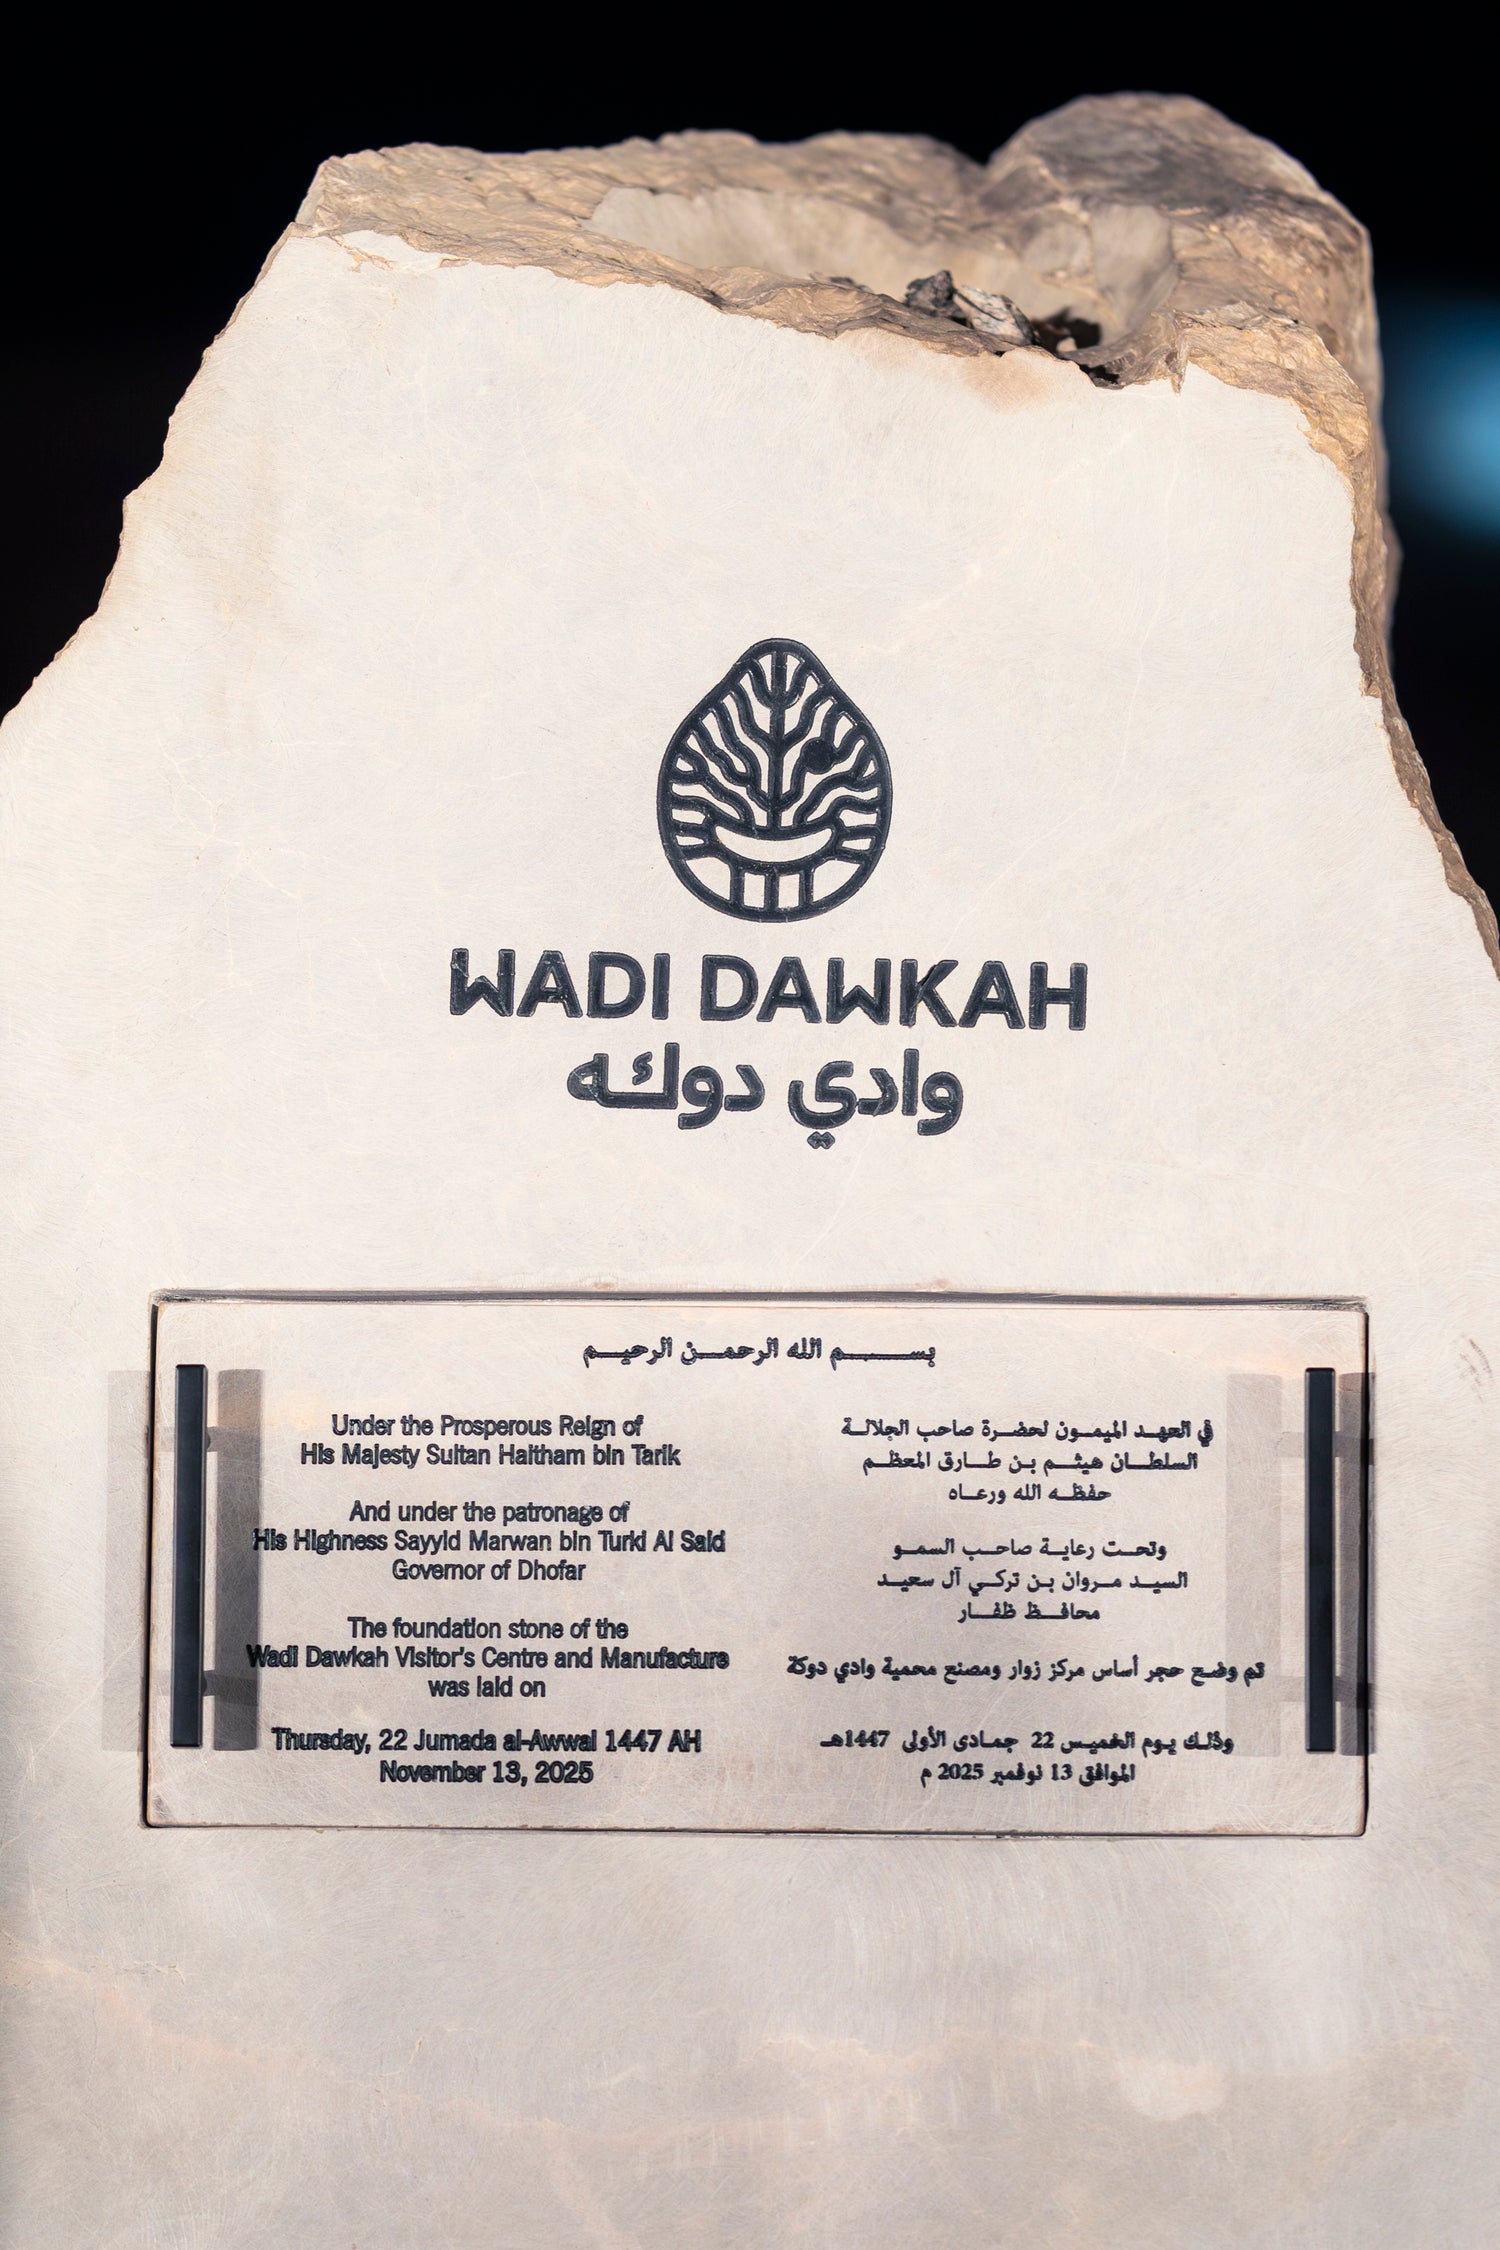 WADI DAWKAH
وادي دوكه
بســـــــم الله الرحمـــن الرحيـــم
Under the Prosperous Reign of
His Majesty Sultan Haitham bin Tarik
And under the patronage of
His Highness Sayyid Marwan bin Turki Al Said
Governor of Dhofar
The foundation stone of the
Wadi Dawkah Visitor's Centre and Manufacture
was laid on
Thursday, 22 Jumada al-Awwal 1447 AH
November 13, 2025
في العهـــد الميمـــون لحضـــرة صاحب الجلالـــة
السلطـــان هيثـــم بـــن طـــارق المعظـــم
حفظـــه الله ورعـــاه
وتحـــت رعايـــة صاحـــب السمـــو
السيـــد مـــروان بـــن تركـــي آل سعيـــد
محافـــظ ظفـــار
تم وضع حجر أساس مركز زوار ومصنع محمية وادي دوكة
وذلـــك يـــوم الخميـــس 22 جمـــادى الأولى 1447هـ
الموافق 13 نوفمبر 2025 م